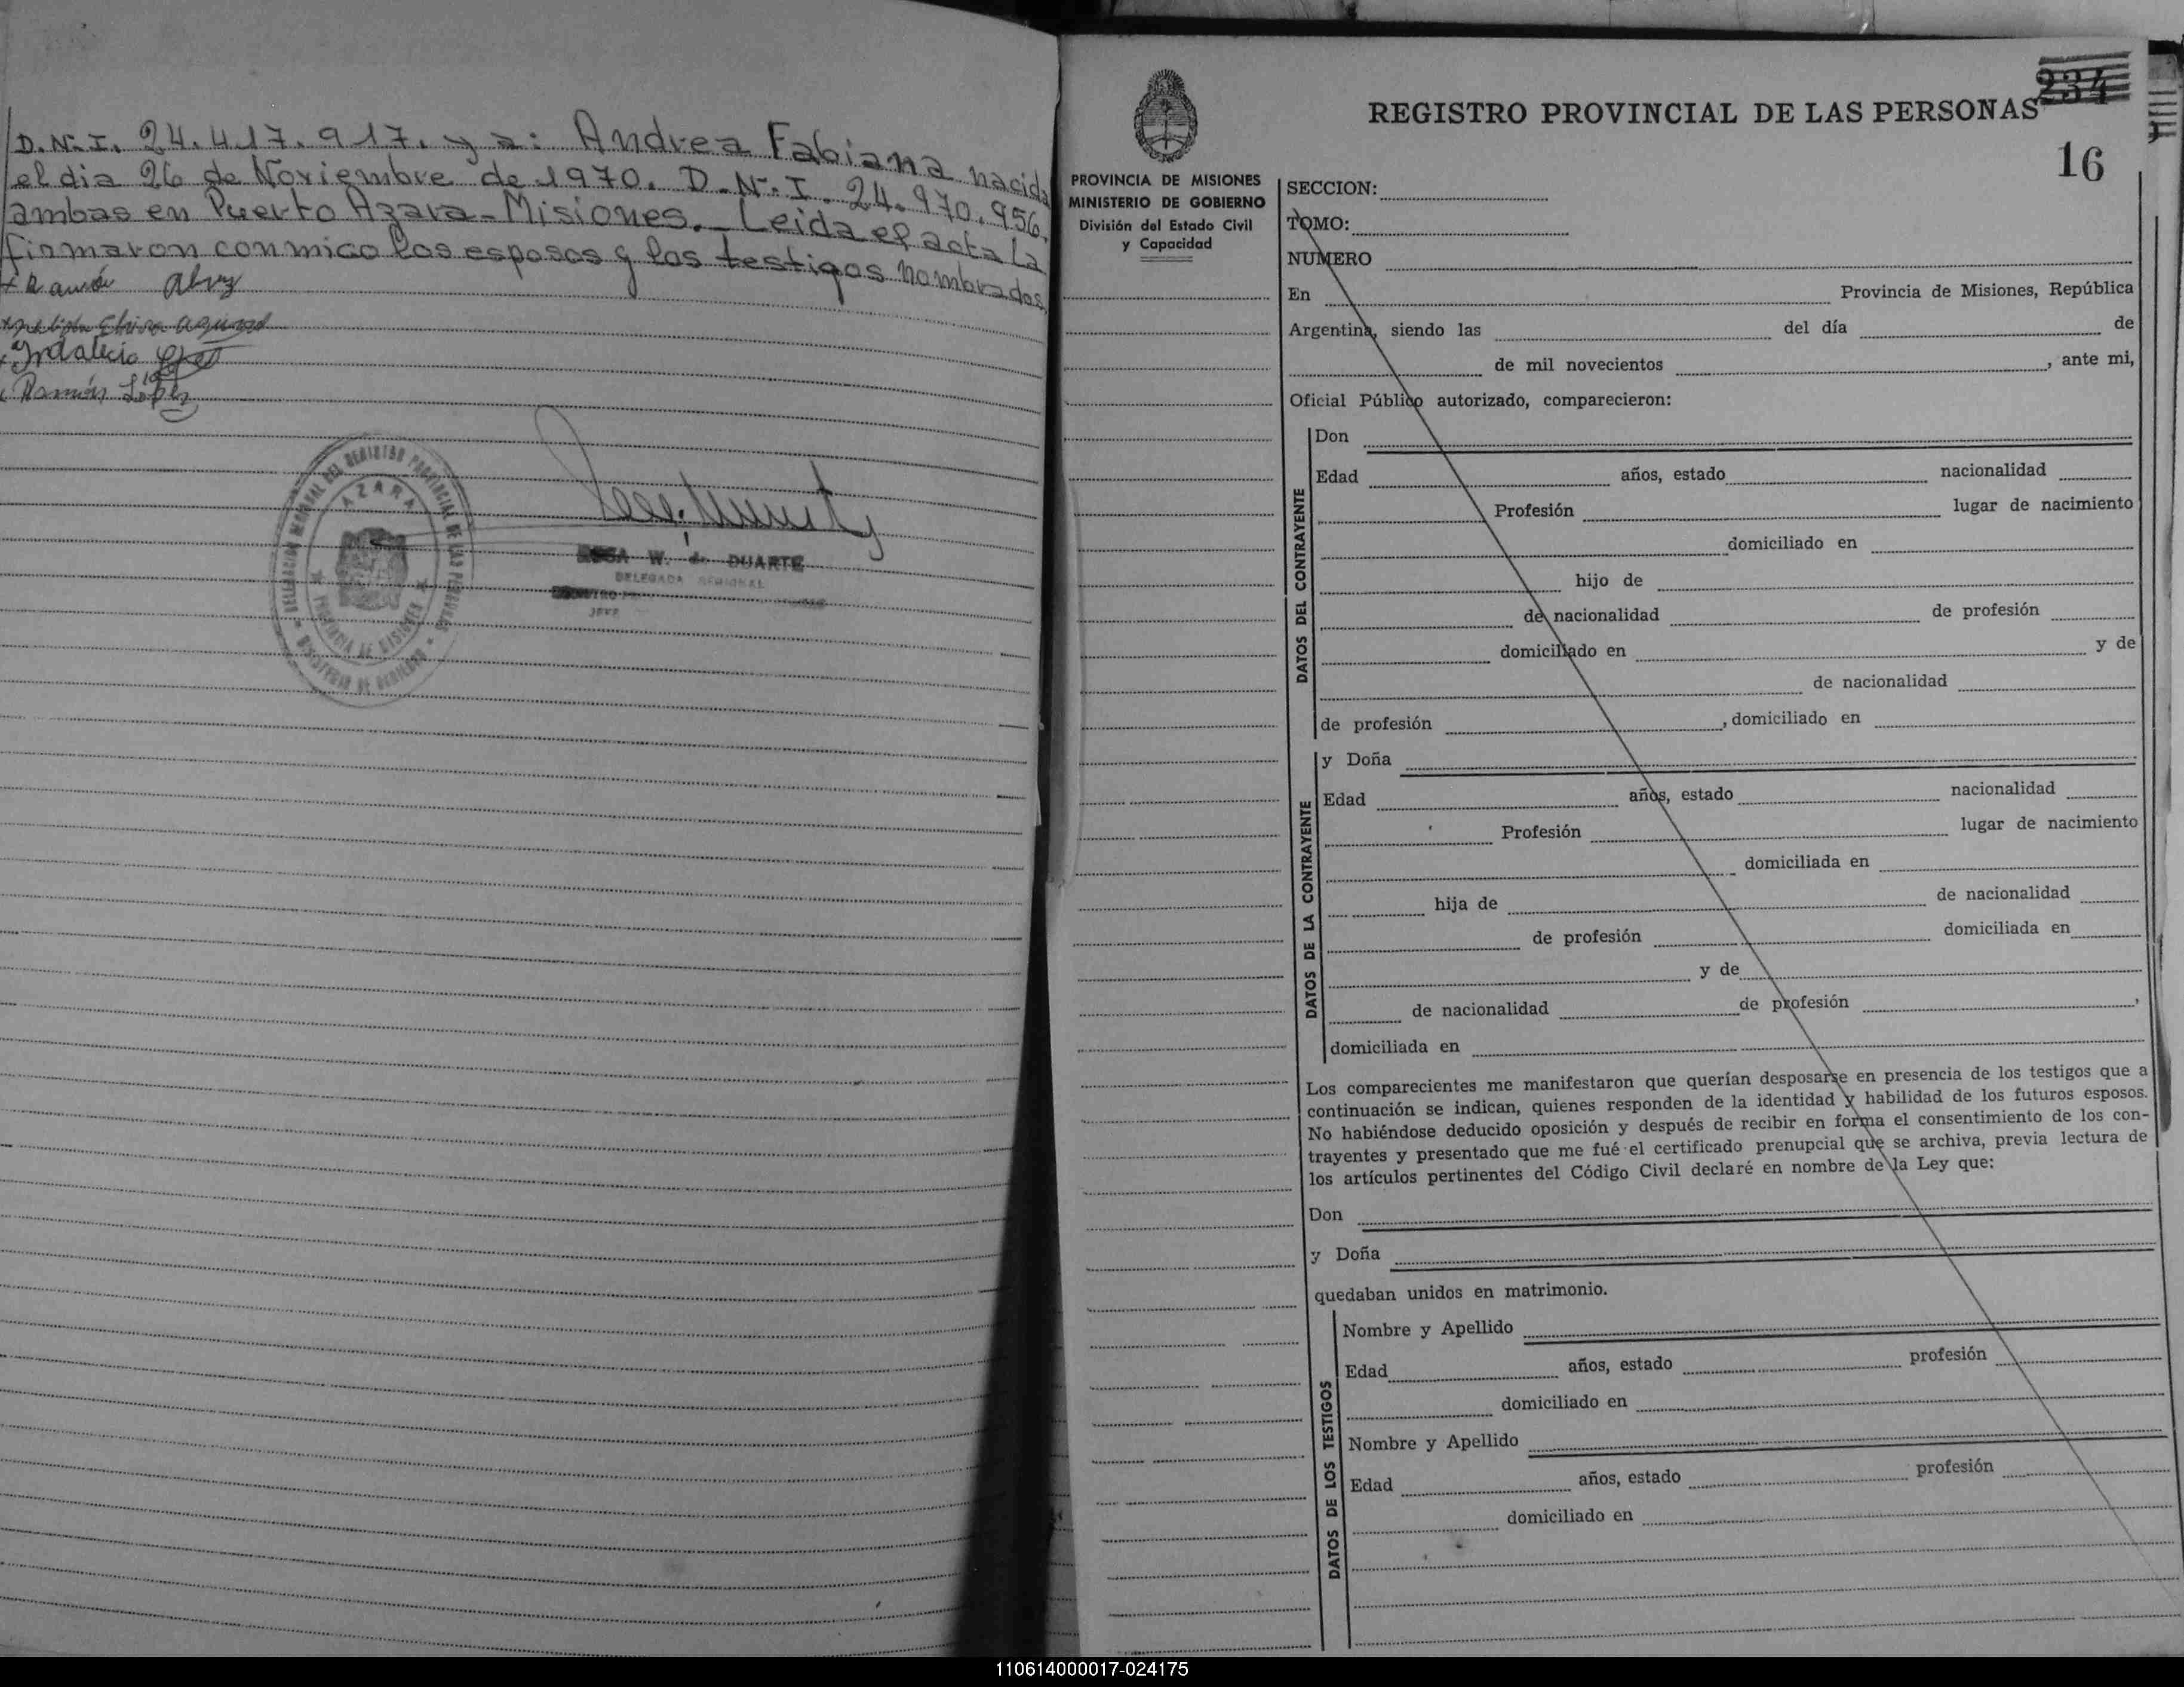 D.N.I. 24.417.917. y a: Andrea Fabiana nacida
el dia 26 de Noviembre de 1970. D.N.I. 24.970.956.
ambas en Puerto Azara-Misiones. Leida el acta La
firmaron conmigo los esposos y los testigos nombrados
Ramón
Indalecio
Ramón López
DELEGACION REGISTRO PROVINCIAL DE LAS PERSONAS
AZARA
PROVINCIA DE MISIONES
MINISTERIO DE GOBIERNO
W. de DUARTE
DELEGADA
JEFE
234
REGISTRO PROVINCIAL DE LAS PERSONAS
16
PROVINCIA DE MISIONES
MINISTERIO DE GOBIERNO
División del Estado Civil
y Capacidad
SECCION:
TOMO:
NUMERO
En Provincia de Misiones, República
Argentina, siendo las del día de
de mil novecientos , ante mi,
Oficial Público autorizado, comparecieron:
DATOS DEL CONTRAYENTE
Don
Edad años, estado nacionalidad
Profesión lugar de nacimiento
domiciliado en
hijo de
de nacionalidad de profesión
domiciliado en y de
de nacionalidad
de profesión , domiciliado en
DATOS DE LA CONTRAYENTE
y Doña
Edad años, estado nacionalidad
Profesión lugar de nacimiento
domiciliada en
hija de de nacionalidad
de profesión domiciliada en
y de
de nacionalidad de profesión ,
domiciliada en
Los comparecientes me manifestaron que querían desposarse en presencia de los testigos que a
continuación se indican, quienes responden de la identidad y habilidad de los futuros esposos.
No habiéndose deducido oposición y después de recibir en forma el consentimiento de los con-
trayentes y presentado que me fué el certificado prenupcial que se archiva, previa lectura de
los artículos pertinentes del Código Civil declaré en nombre de la Ley que:
Don
y Doña
quedaban unidos en matrimonio.
DATOS DE LOS TESTIGOS
Nombre y Apellido
Edad años, estado profesión
domiciliado en
Nombre y Apellido
Edad años, estado profesión
domiciliado en
110614000017-024175